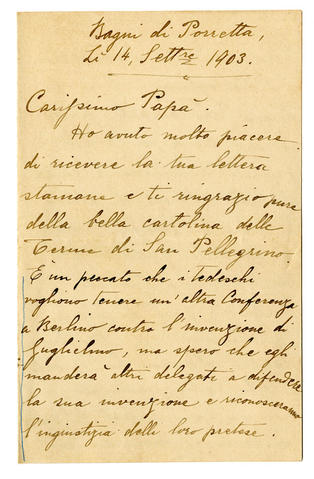 Bagni di Porretta,
Lì 14, Settre 1903.
Carissimo Papà.
Ho avuto molto piacere
di ricevere la tua lettera
stamane e ti ringrazio pure
della bella cartolina delle
Terme di San Pellegrino.
È un peccato che i tedeschi
vogliono tenere un'altra Conferenza
a Berlino contro l'invenzione di
Guglielmo, ma spero che egli
manderà altri delegati a difendere
la sua invenzione e riconosceranno
l'ingiustizia delle loro pretese.